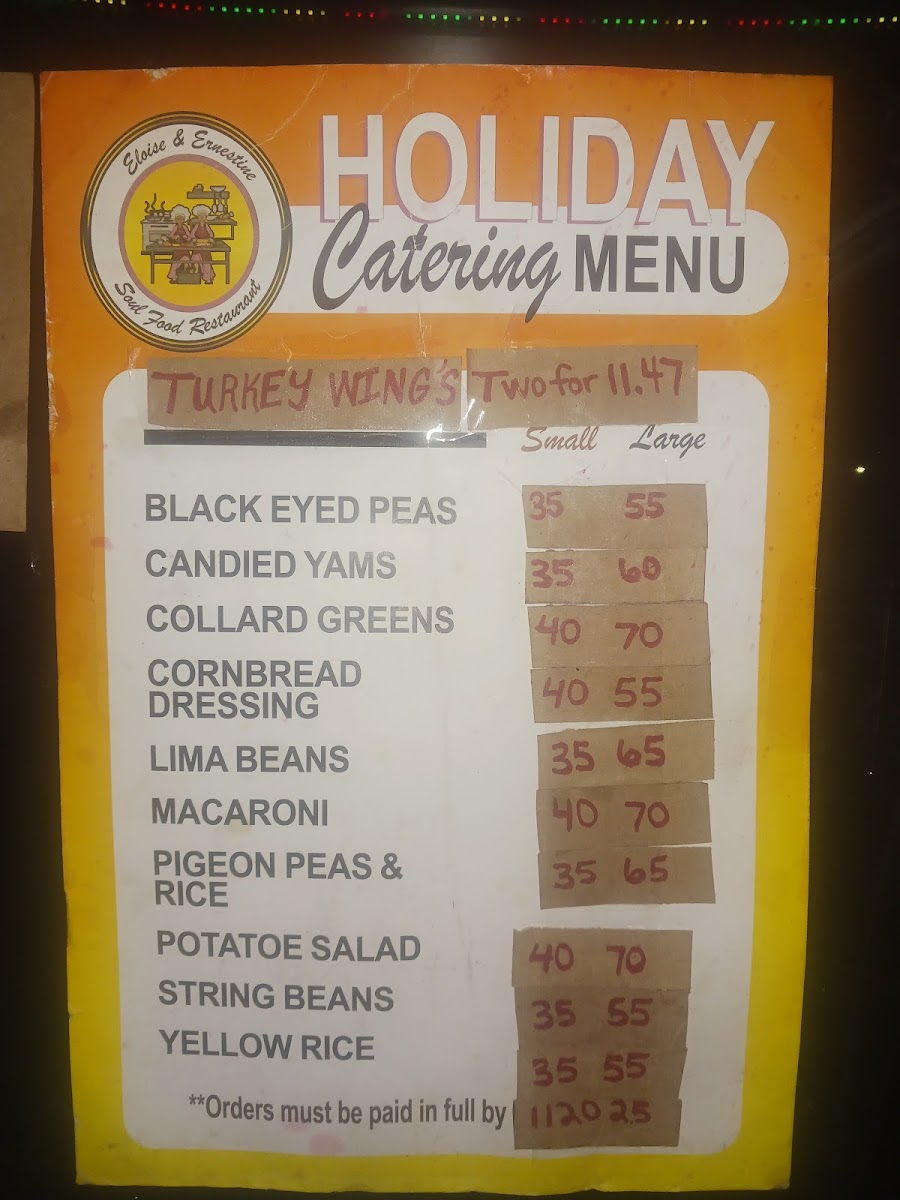 Eloise & Ernestine
Soul Food Restaurant
HOLIDAY
Catering MENU
TURKEY WING'S Two for 11.47
Small Large
BLACK EYED PEAS 35 55
CANDIED YAMS 35 60
COLLARD GREENS 40 70
CORNBREAD
DRESSING 40 55
LIMA BEANS 35 65
MACARONI 40 70
PIGEON PEAS &
RICE 35 65
POTATOE SALAD 40 70
STRING BEANS 35 55
YELLOW RICE 35 55
**Orders must be paid in full by 112025